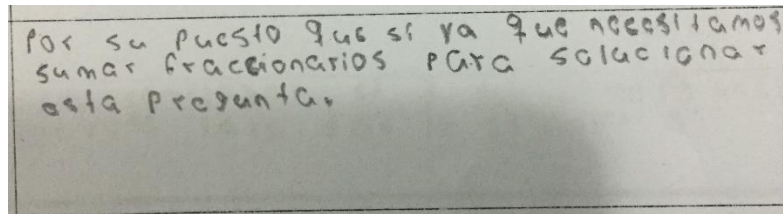 Por su puesto que si ya que necesitamos
sumar fraccionarios para solucionar
esta pregunta.